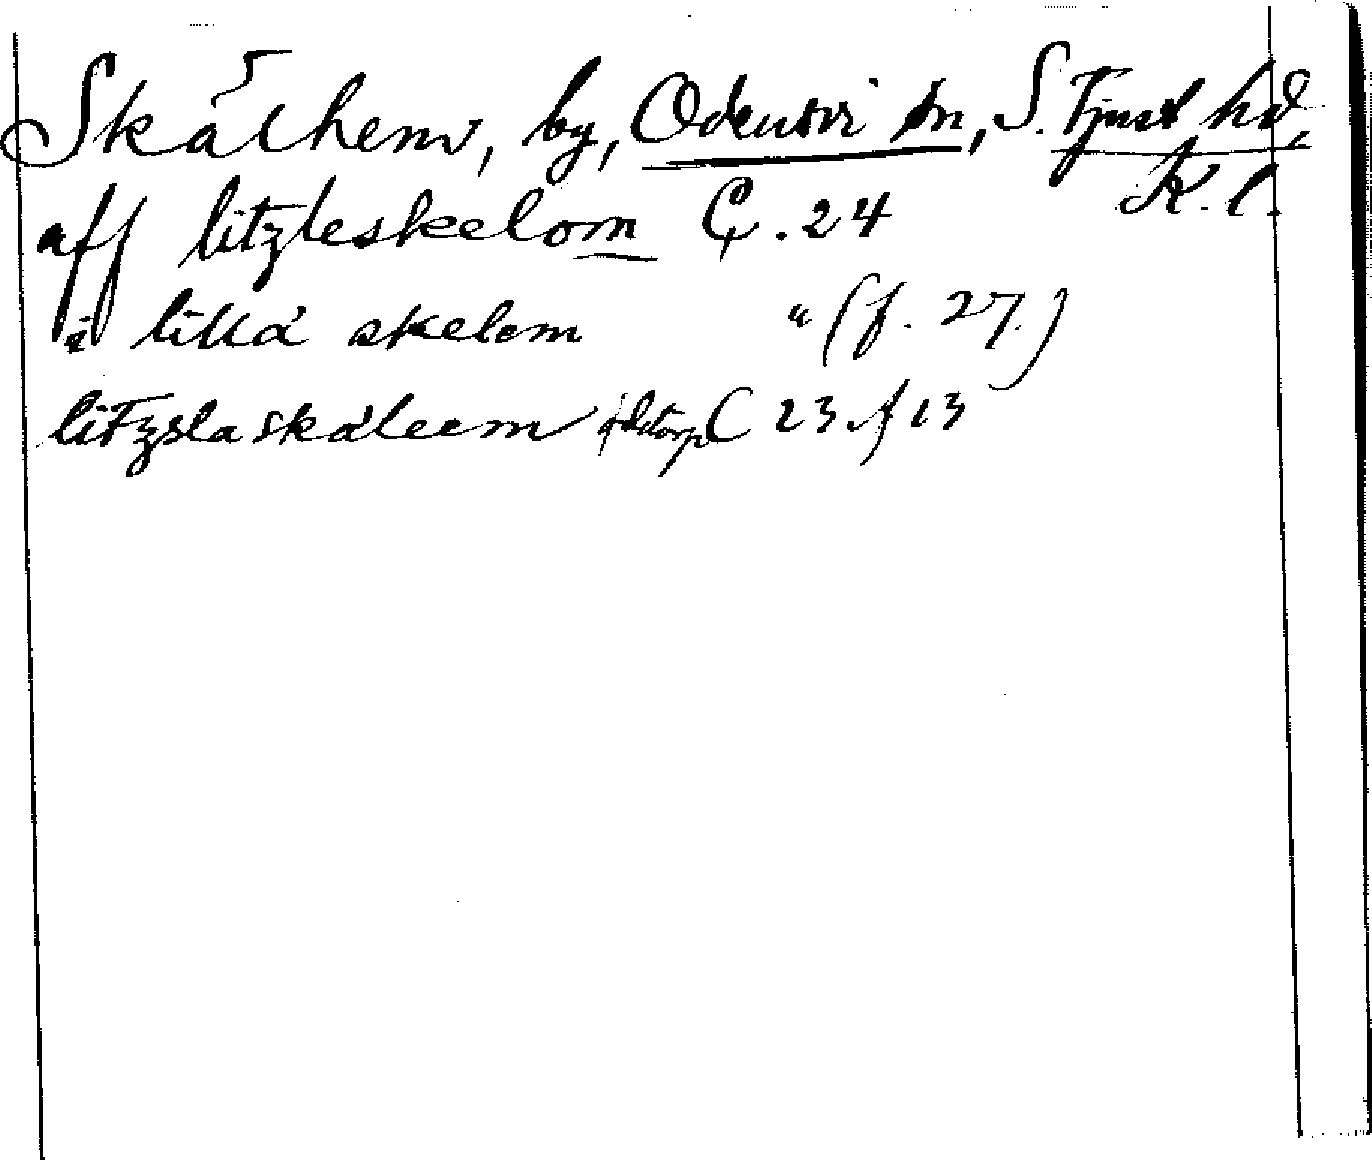 Skälhem, by, Odensvi sn, S. Tjust hd,
K. l.
aff litzleskelom C. 24
i lilla skelom " (f. 27.)
litzslaskaleem C 23 f 13